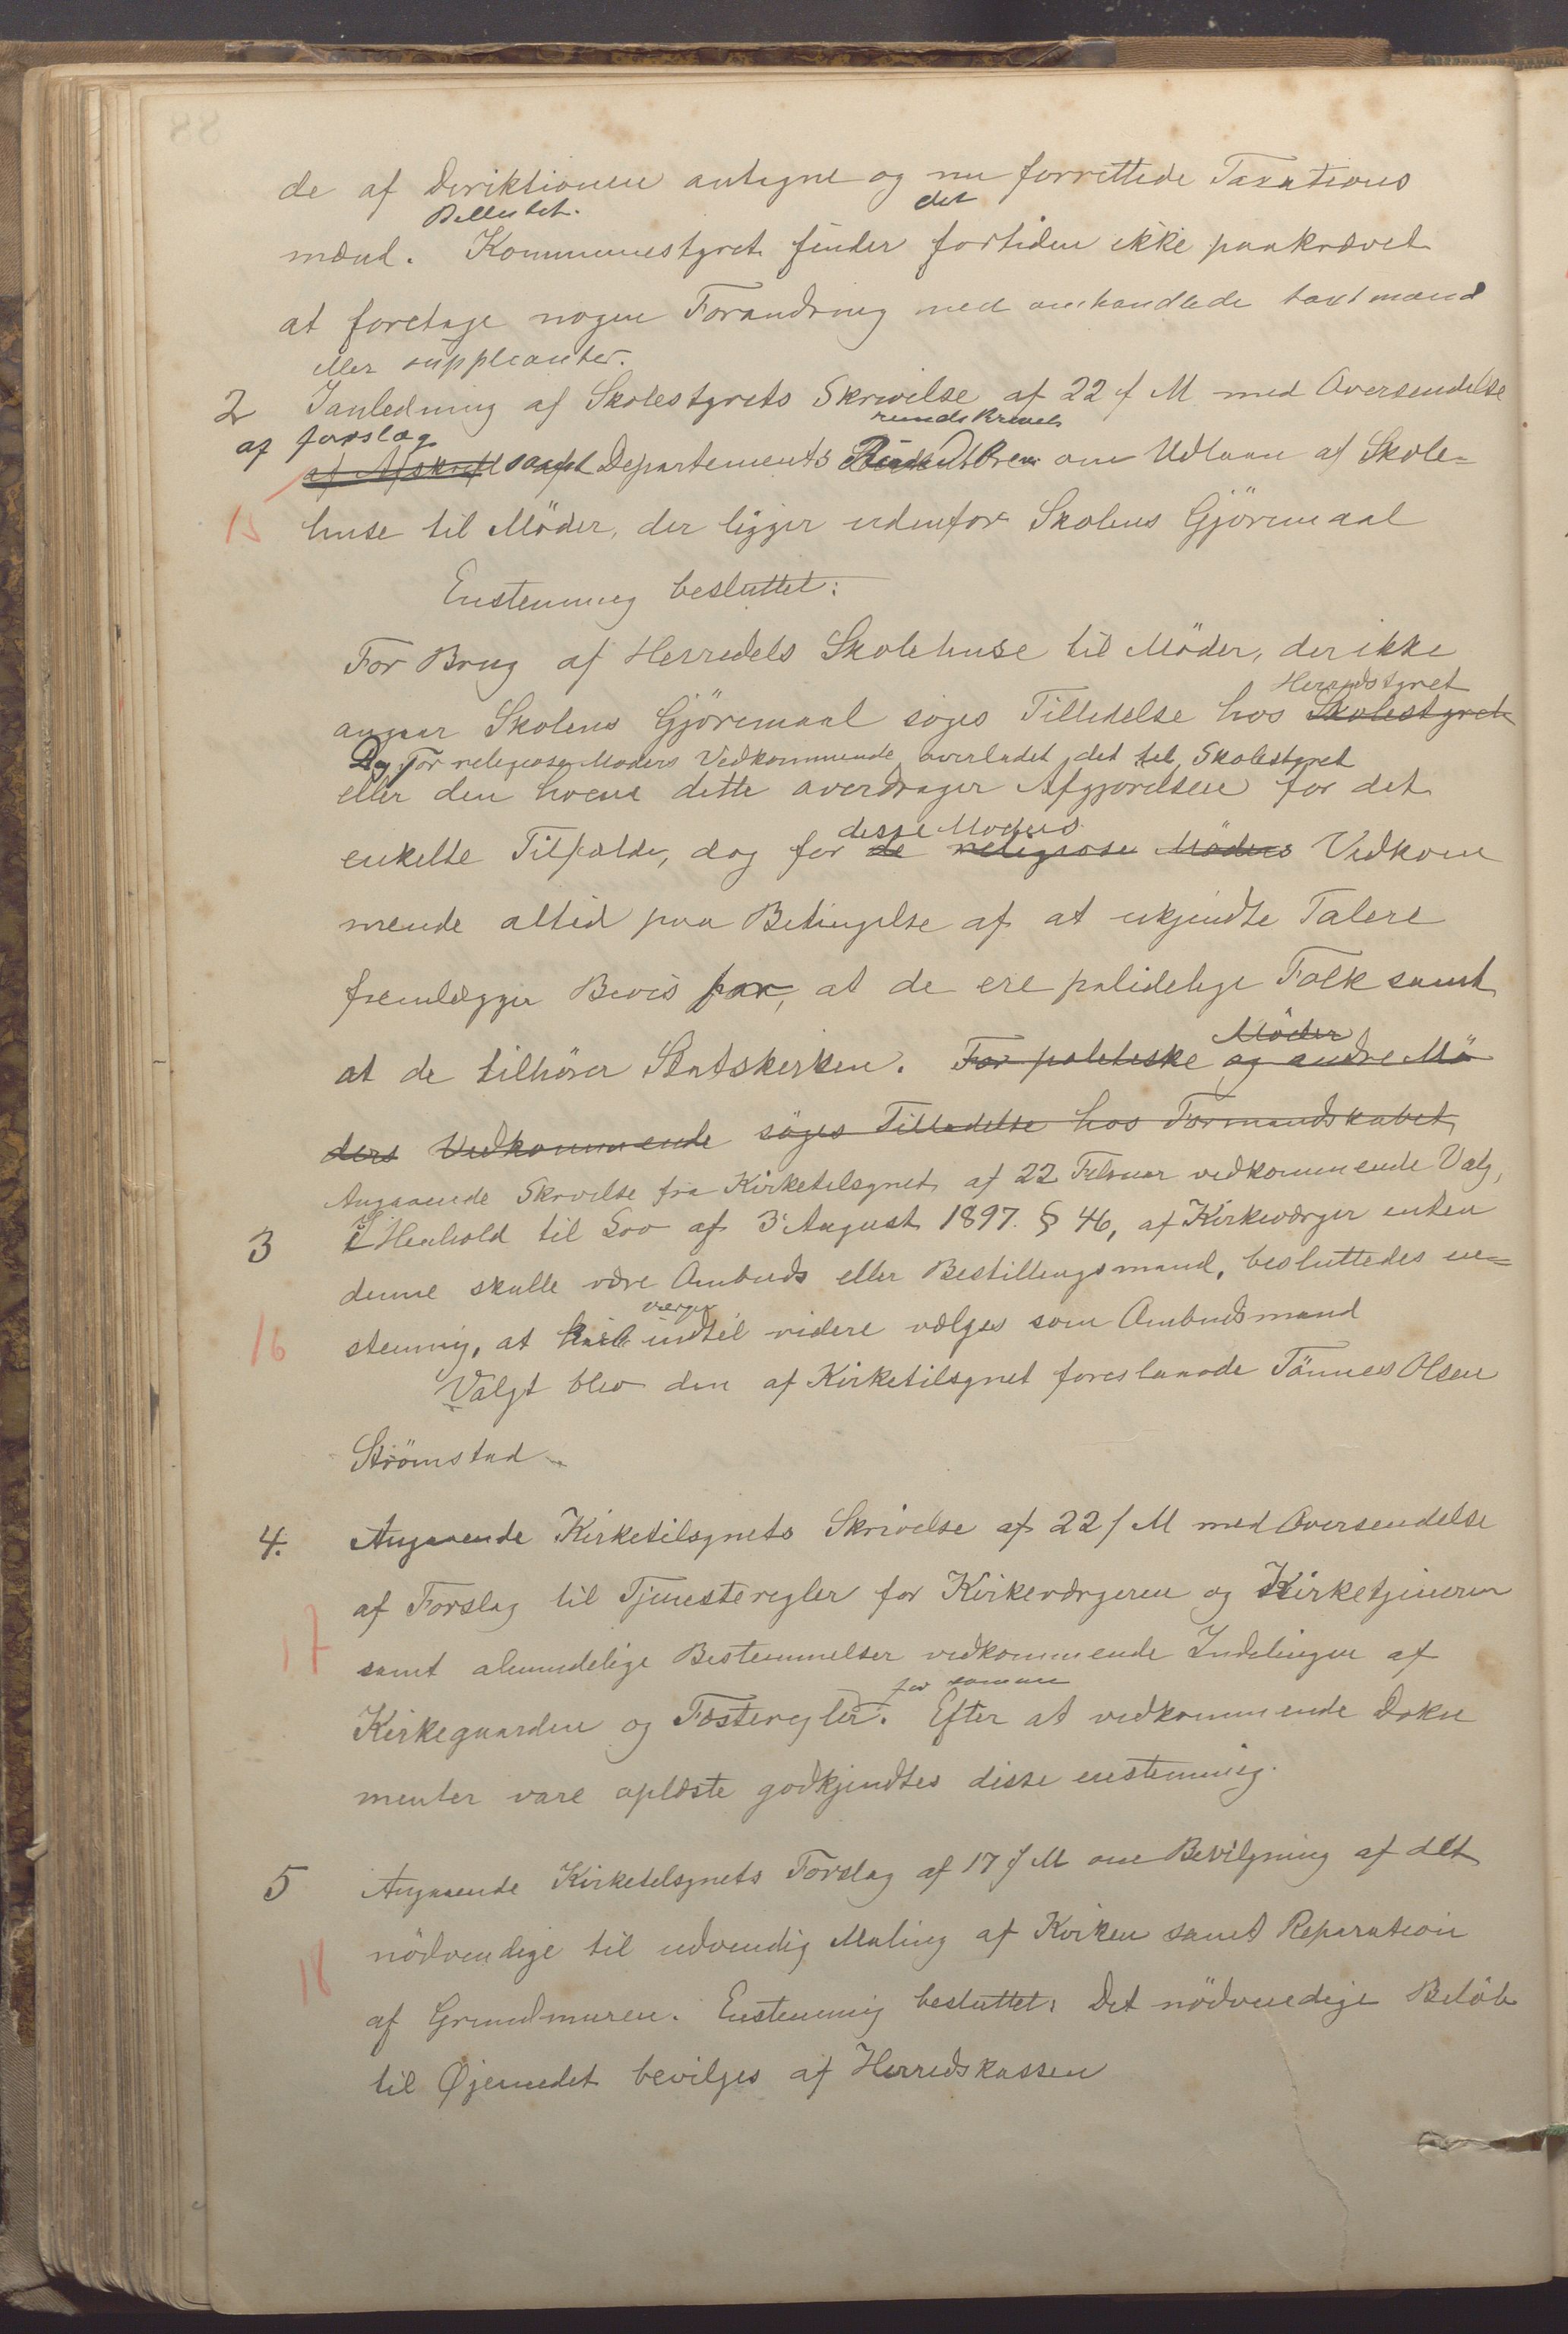 de af Diriktionen antagne og nu forrettede Taxations
Besluttet. det
mænd. Kommunestyret finder fortiden ikke paakrævet
at foretage nogen Forandring med omhandlede taxtmænd
eller suppleanter.
2 Ianledning af Skolestyrets Skrivelse af 22 f M med Oversendelse
af forslag rundskrivels
af Afskrift samt Departements om Udlaan af Skole-
15 huse til Möder, der ligger udenfor Skolens Gjöremaal
Enstemmig besluttet:
For Brug af Herredets Skolehuse til Möder, der ikke
Herredstyret
angaar Skolens Gjöremaal söges Tilladelse hos Skolestyret
Dog For religiøse Moders Vedkommende overladet det til Skolestyret
eller den hvem dette overdrager Afgjorelsen for det
disse Moders
enkelte Tilfælde, dog for de religiose Möders Vedkom
mende altid paa Betingelse af at ukjendte Talere
fremlægger Bevis for, at de ere palidelige Folk samt
Möder
at de tilhörer Statskirken. For politiske og andre Mö
ders Vedkommende söges Tilladelse hos Formandskabet
Angaaende Skrivelse fra Kirketilsynet af 22 Februar vedkommende Valg,
3 I Henhold til Lov af 3 August 1897. § 46, af Kirkeværger enten
denne skulle være Ombuds eller Bestillingsmand, besluttedes en-
værger
16 stemmig, at Kirke indtil videre vælges som Ombudsmand
Valgt blev den af Kirketilsynet foreslaaede Tönnes Olsen
Strömstad
4. Angaaende Kirketilsynets Skrivelse af 22 f M med Oversendelse
af Forslag til Tjenesteregler for Kirkeværgeren og Kirketjeneren
17 samt almindelige Bestemmelser vedkommende Indelingen af
for samme
Kirkegaarden og Festeregler. Efter at vedkommende Doku
menter vare oplæste godkjendtes disse enstemmig.
5 Angaaende Kirketilsynets Forslag af 17 f M om Bevilgning af det
18 nödvendige til udvendig Maling af Kirken samt Reparation
af Grundmuren. Enstemmig besluttet: Det nödvendige Belöb
til Øjemedet bevilges af Herredskassen